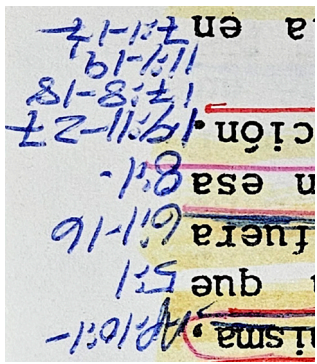 misma. Ap.10:1-
que 5:1
fuera 6:1-16
esa 8:1-
ción.
17:8-18
11:1-19
a en 7:1-17